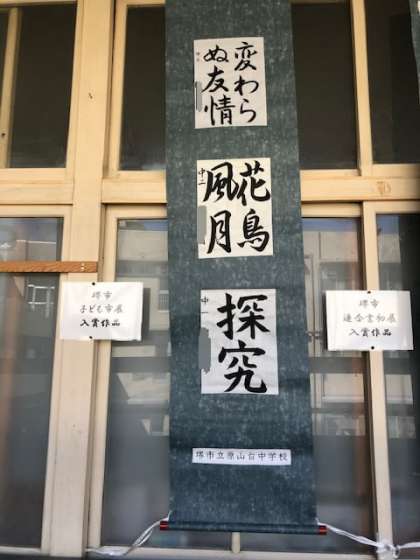 変わら
ぬ友情
花鳥
風月
中二
探究
中一
堺市立原山台中学校
堺市
子ども市展
入賞作品
堺市
連合書初展
入賞作品